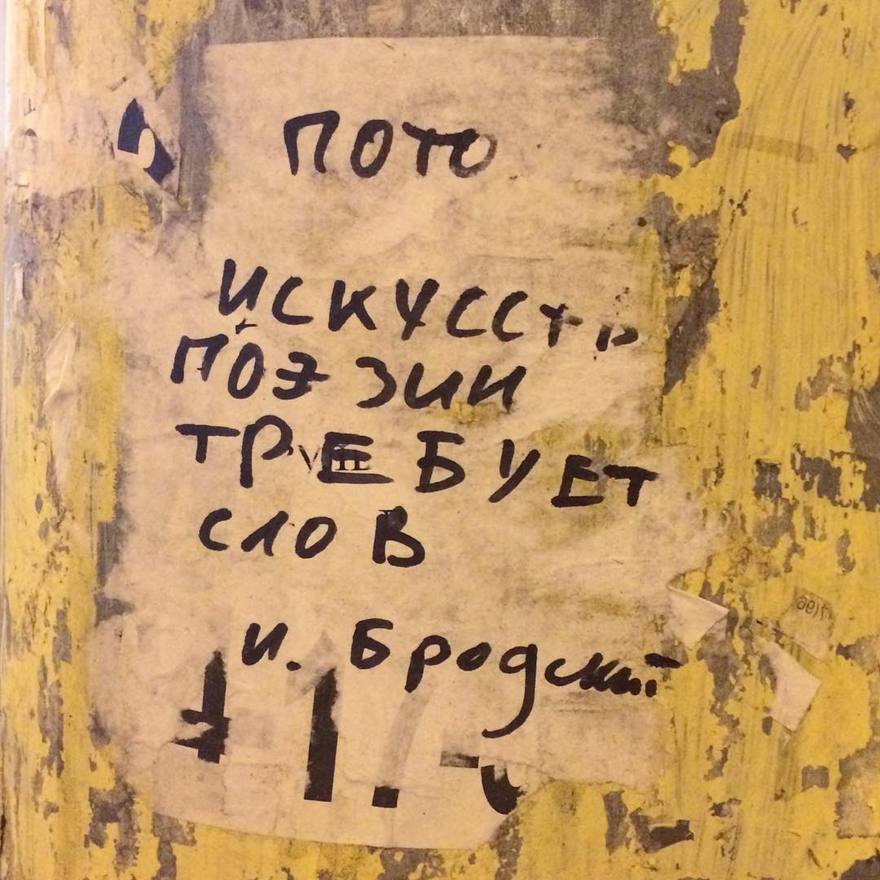 ПОТО
ИСКУССТВ
ПОЭЗИИ
ТРЕБУЕТ
СЛОВ
И. Бродский